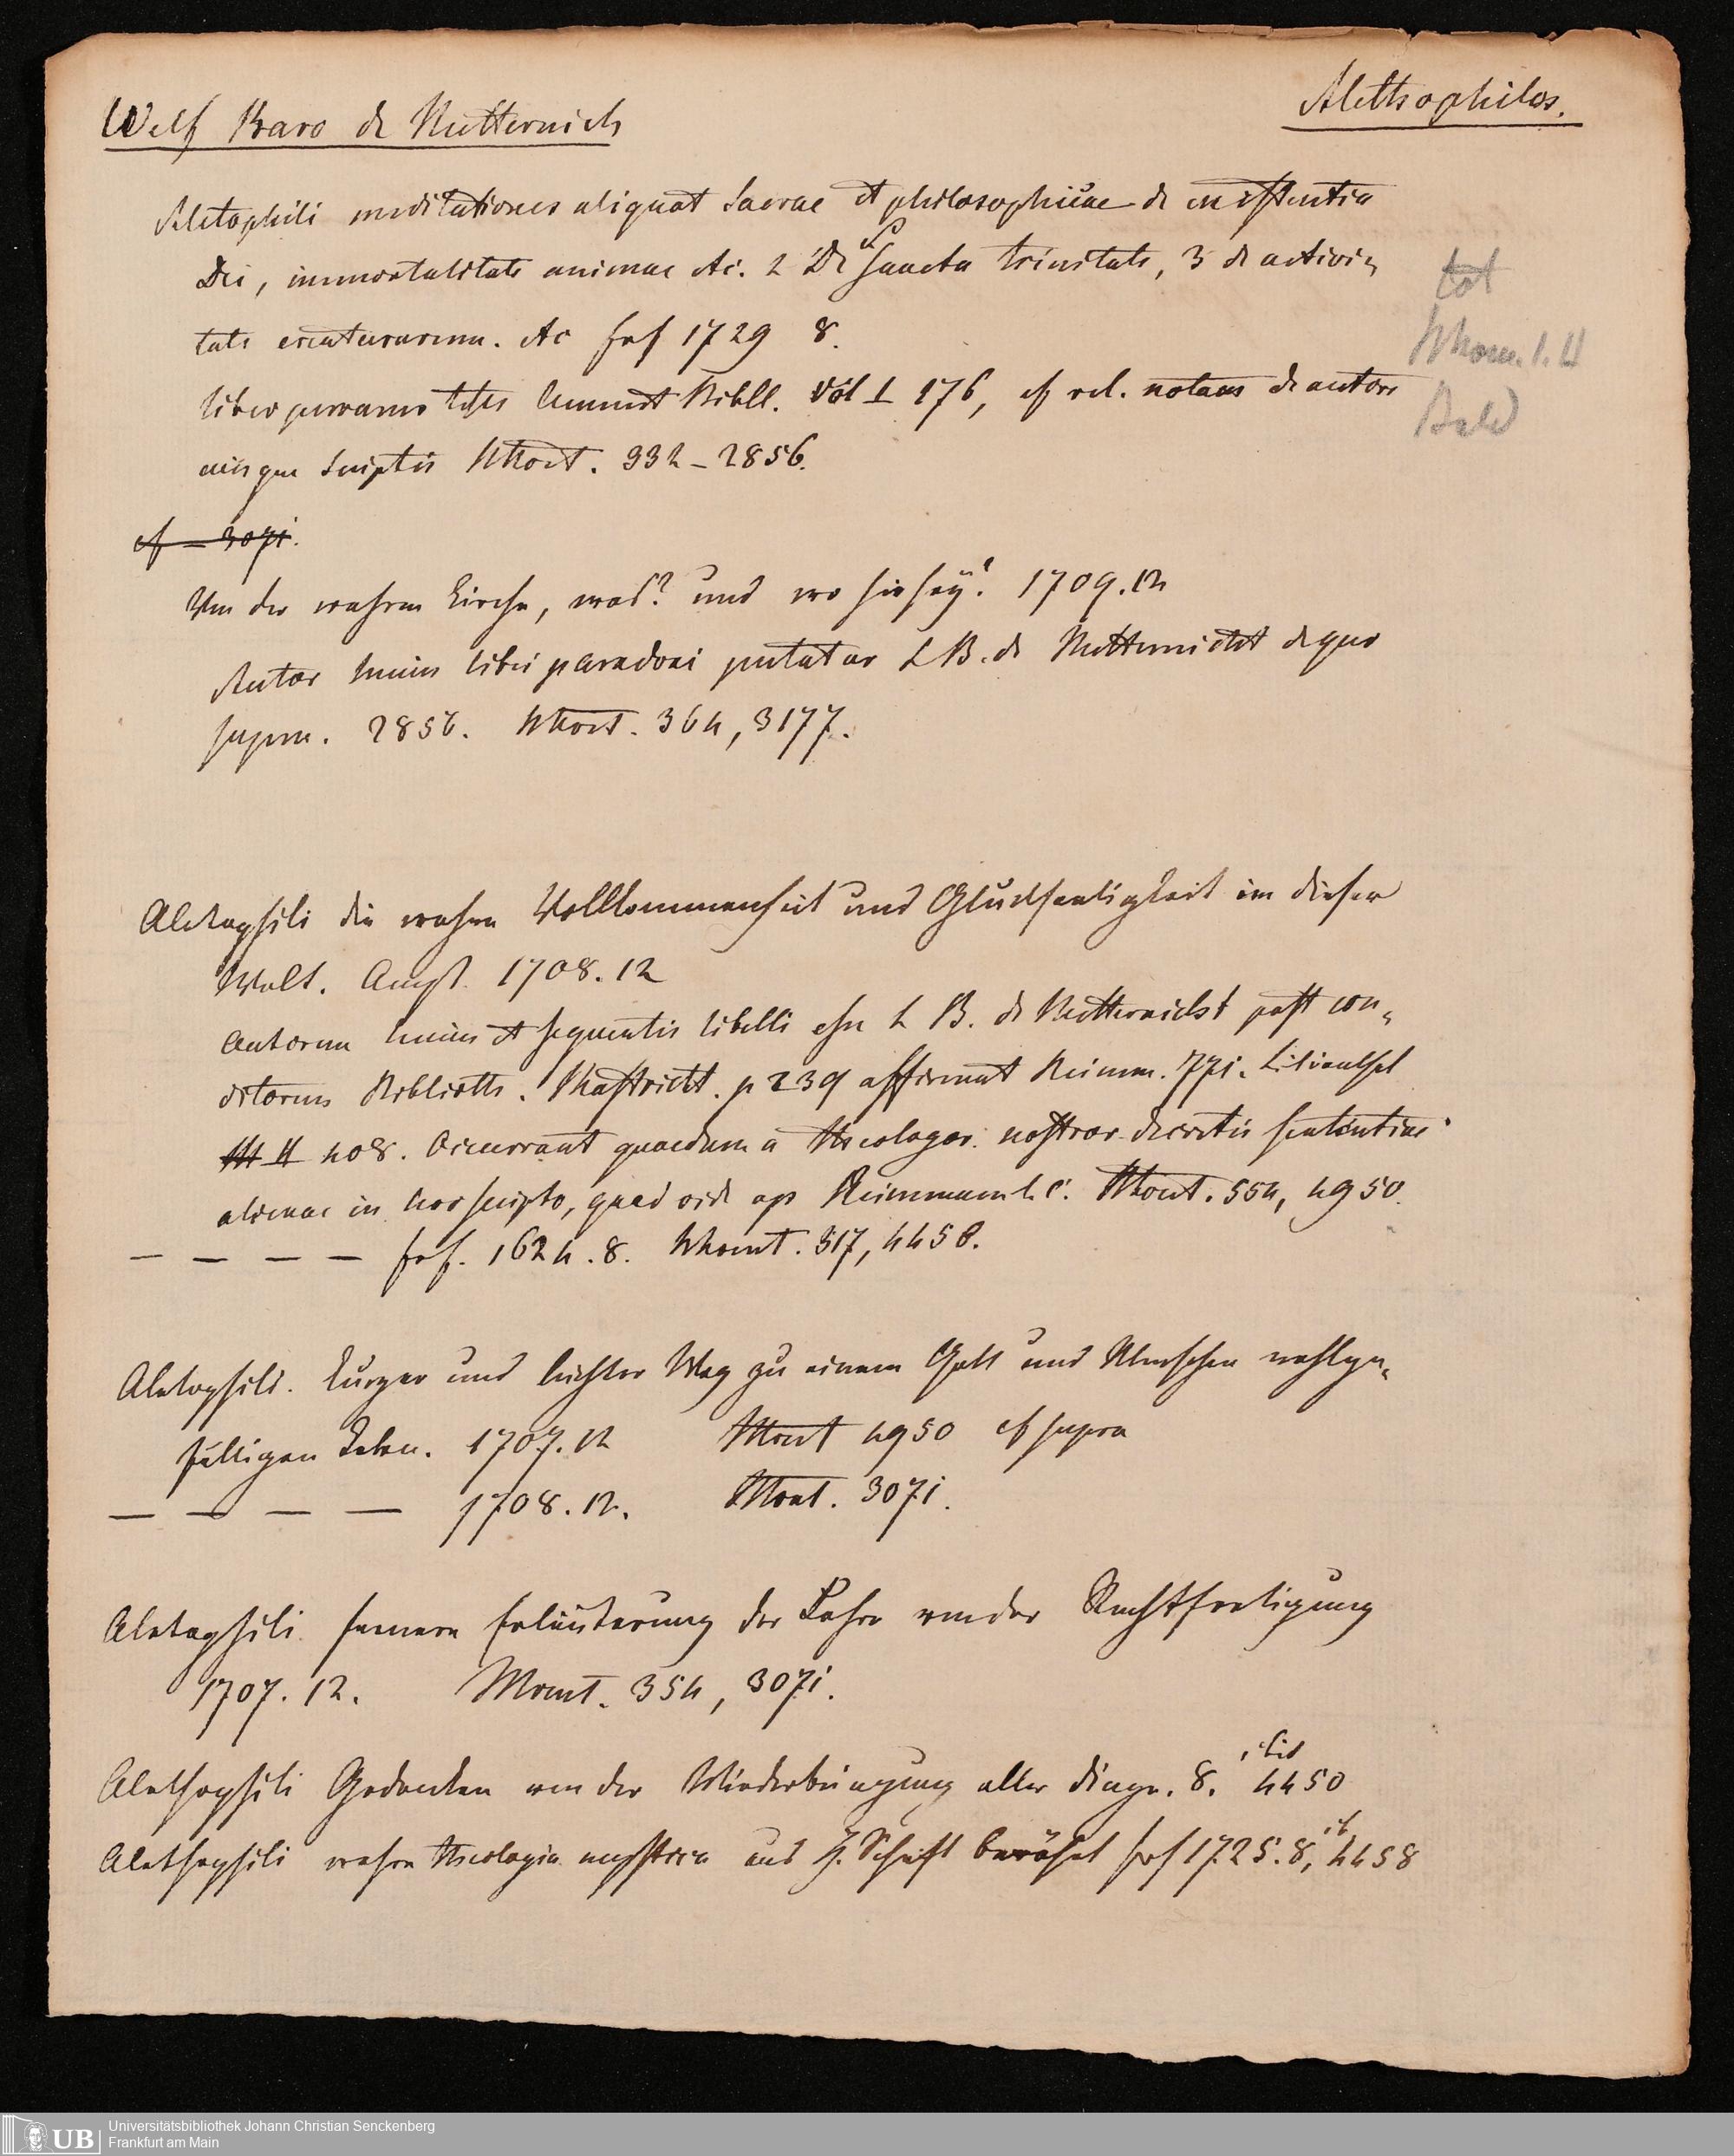 Wolf Baro de Metternich
Alethophilos.
Aletophili meditationes aliquot sacrae et philosophicae de existentia
Dei, immortalitate animae etc. 2 De sancta trinitate, 3 de activi-
tate creaturarum. etc frf 1729 8.
liber perrarus teste Bibll. Vol I 176, cf rel. notam de autore
eiusque scriptis 332–2856.
cf – 3071.
Von der wahren Kirche, was? und wo sie sey? 1709. 12
Autor huius libri paradoxi putatur L B. de Metternicht de quo
supra. 2856. 364, 3177.
Aletophili die wahre Vollkommenheit und Glückseeligkeit in dieser
Welt. Amst. 1708. 12
autorem huius et sequentis libelli esse L B. de Metternicht post con-
ditorem Biblioth. Mastricht. p 239 affirmat Reimm. 771. Lilienthal
III II 408. Occurrunt quaedam a Theologor. nostror decretis sententiae
alienae in hoc scripto, quod vide ap Reimmann l. c. 554, 4950.
– – – – frf. 1624. 8. 317, 4458.
Aletophili. Kurzer und leichter Weg zu einem Gott und Menschen wohlge-
fälligen Leben. 1707. 12 4950 cf supra
– – – – 1708. 12. 3071.
Aletophili fernere Erläuterung der Lehre von der Rechtfertigung
1707. 12. 354, 3071.
Alethophili Gedanken von der Wiederbringung aller dinge. 8. ibid 4450
Alethophili wahre Theologia mystica aus H. Schrift bewähret frf 1725. 8, ib 4458
tot
Bald